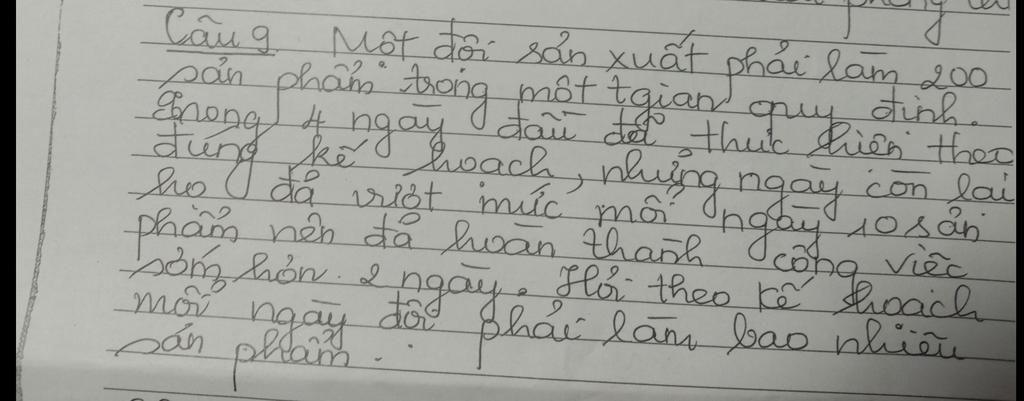 Câu 9 Một đội sản xuất phải làm 200
sản phẩm trong một tgian quy định.
Trong 4 ngày đầu đội thực hiện theo
đúng kế hoạch, những ngày còn lại
họ đã vượt mức mỗi ngày 10 sản
phẩm nên đã hoàn thành công việc
sớm hơn 2 ngày. Hỏi theo kế hoạch
mỗi ngày đội phải làm bao nhiêu
sản phẩm.